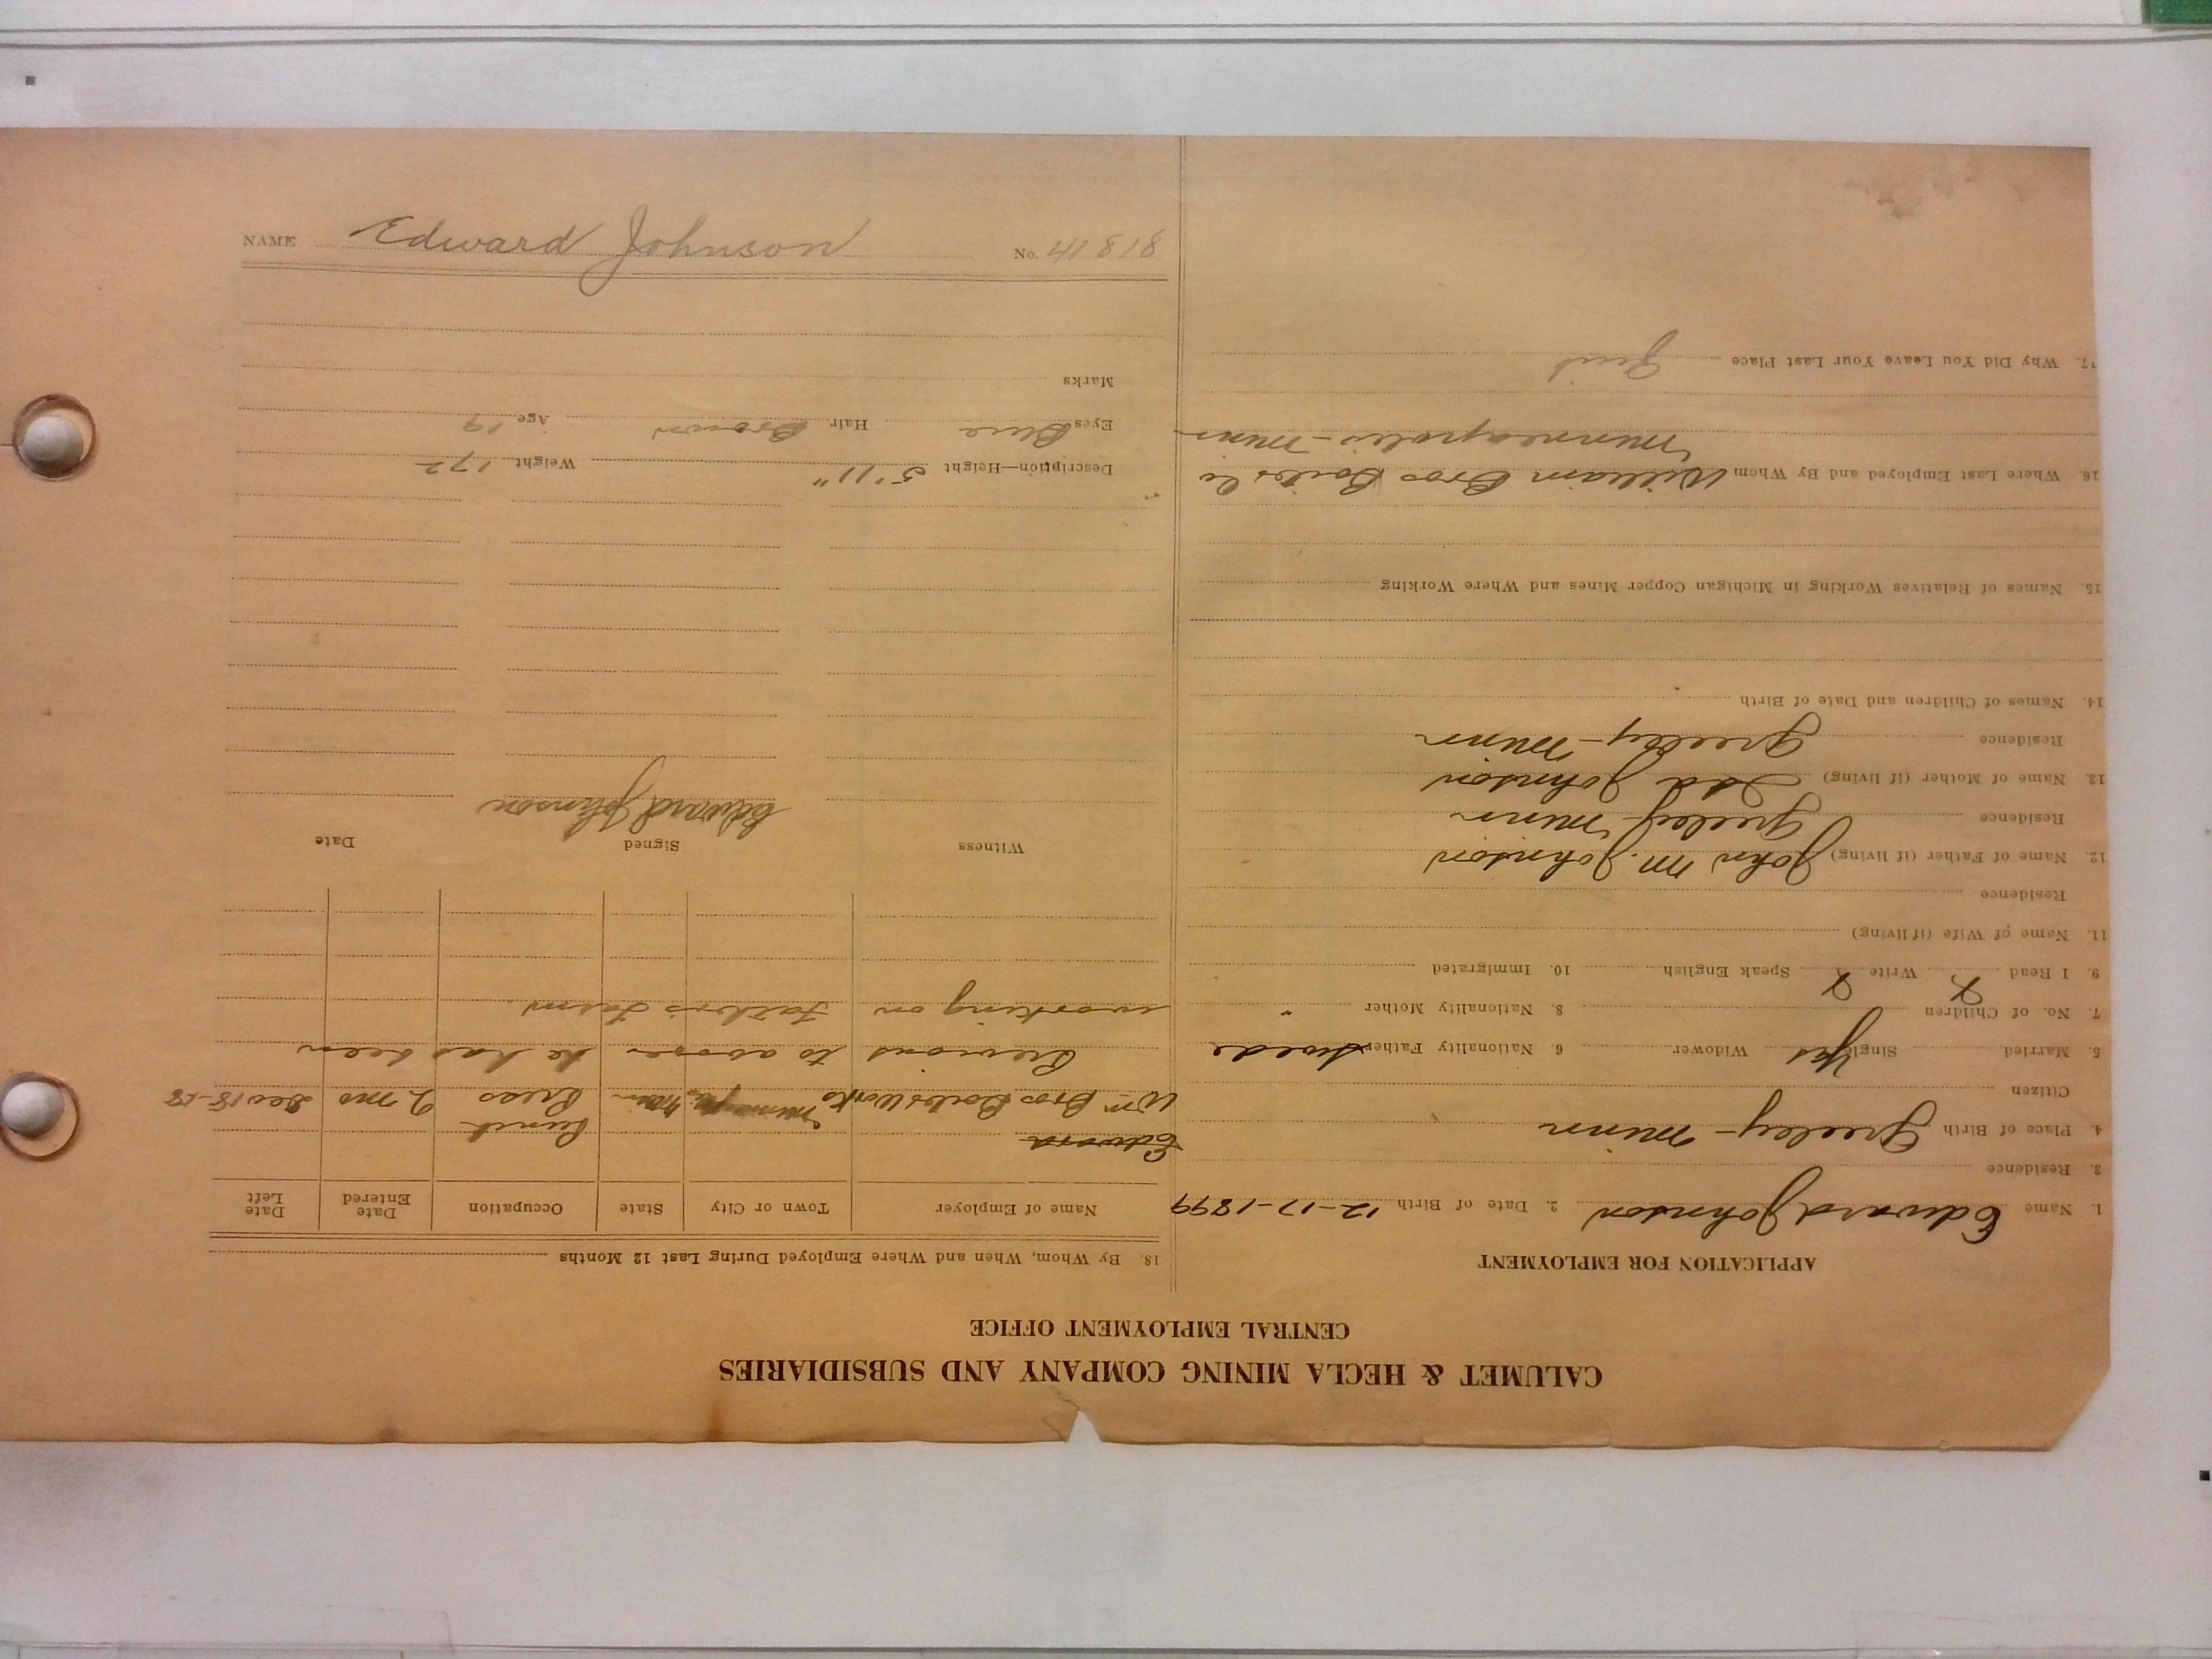 CALUMET & HECLA MINING COMPANY AND SUBSIDIARIES
CENTRAL EMPLOYMENT OFFICE
APPLICATION FOR EMPLOYMENT
1. Name Edward Johnson 2. Date of Birth 12-17-1899
3. Residence
4. Place of Birth Greeley - Minn
Citizen
5. Married Single Yes Widower 6. Nationality Father Swede
7. No. of Children 8. Nationality Mother "
9. I Read X Write X Speak English 10. Immigrated
11. Name of Wife (if living)
Residence
12. Name of Father (if living) John M. Johnson
Residence Greeley - Minn
13. Name of Mother (if living) Ida Johnson
Residence Greeley - Minn
14. Names of Children and Date of Birth
15. Names of Relatives Working in Michigan Copper Mines and Where Working
16. Where Last Employed and By Whom William Bros Boiler Co
Minneapolis - Minn
17. Why Did You Leave Your Last Place Quit
18. By Whom, When and Where Employed During Last 12 Months
Name of Employer Town or City State Occupation Date Entered Date Left
Edward
Wm Bros Boiler Works Minneapolis Minn Punch Press 2 mo Dec 18-18
Previous to above he has been
working on father's farm.
Witness Signed Date
Edward Johnson
Description—Height 5'11" Weight 172
Eyes Blue Hair Brown Age 19
Marks
NAME Edward Johnson No. 41818